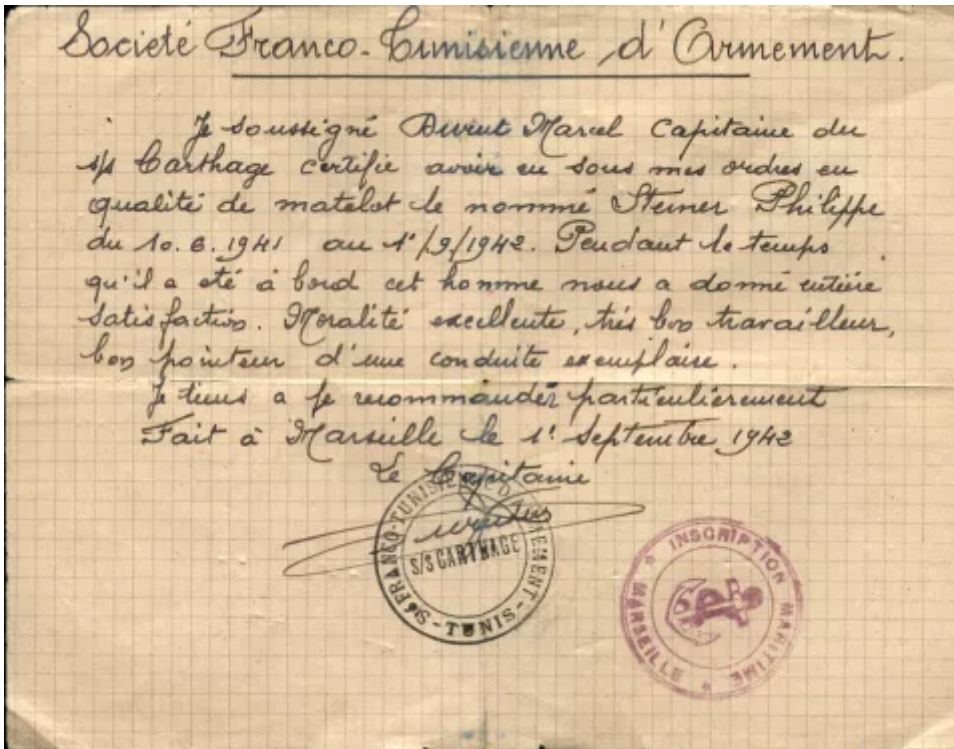 Societé Franco-Tunisienne d'Armement.
Je soussigné Marcel Capitaine du
s/s Carthage certifie avoir eu sous mes ordres en
qualité de matelot le nommé Steiner Philippe
du 10.6.1941 au 1°/9/1942. Pendant le temps
qu'il a eté à bord cet homme nous a donné entière
satisfaction. Moralité excellente, très bon travailleur,
bon pointeur d'une conduite exemplaire.
Je tiens a le recommander particulièrement
Fait à Marseille le 1° Septembre 1942
Le Capitaine
Sté FRANCO-TUNISIENNE D'ARMEMENT - TUNIS -
S/S CARTHAGE
INSCRIPTION MARITIME
MARSEILLE